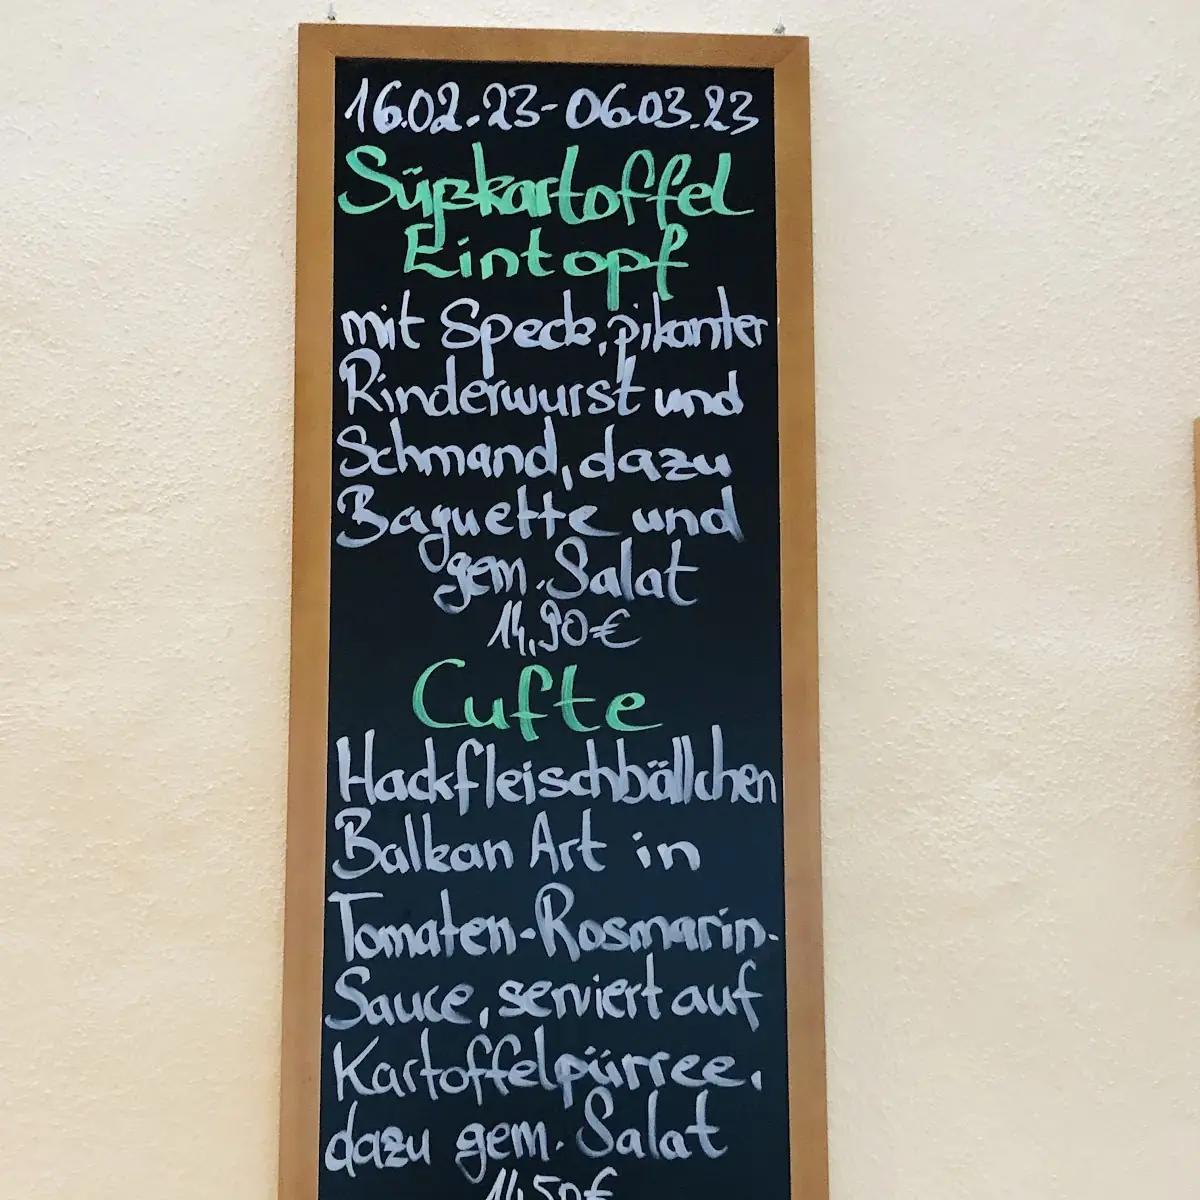 16.02.23-06.03.23
Süßkartoffel
Eintopf
mit Speck, pikanter
Rinderwurst und
Schmand, dazu
Baguette und
gem. Salat
14,90€
Cufte
Hackfleischbällchen
Balkan Art in
Tomaten-Rosmarin-
Sauce, serviert auf
Kartoffelpürree,
dazu gem. Salat
14,50€